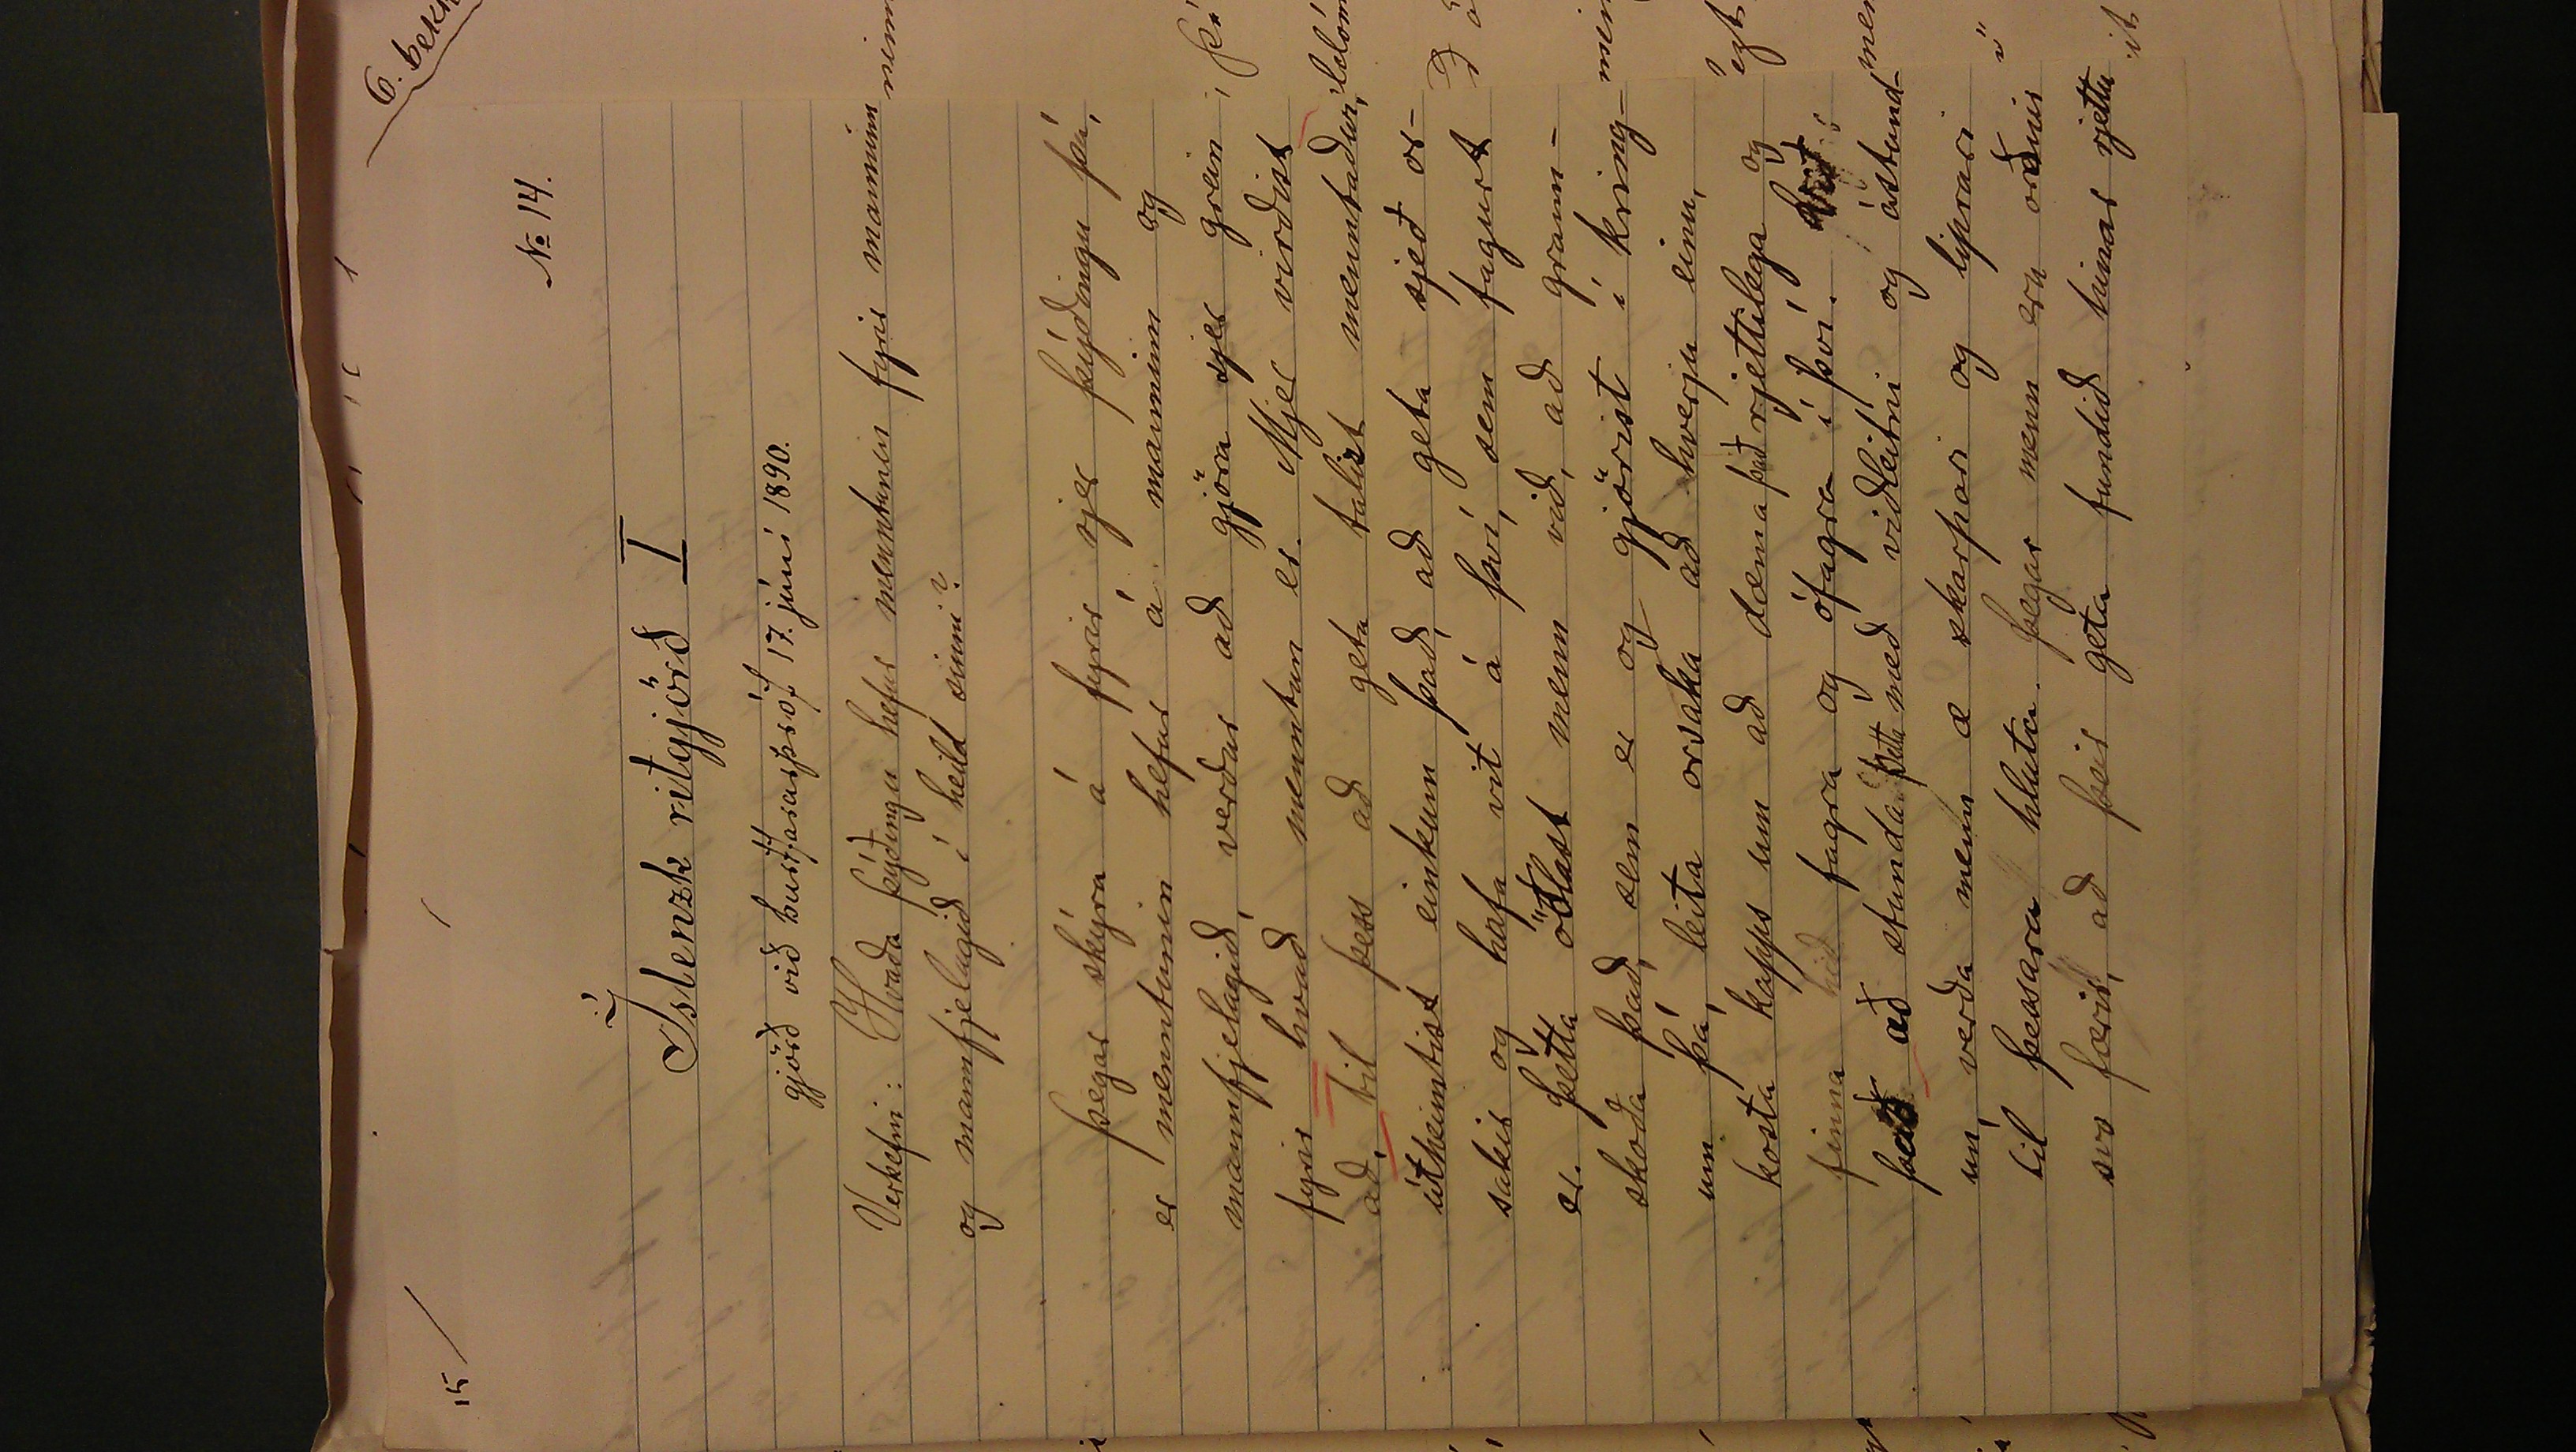 15/
6. bekk
№ 14.
Íslenzk ritgjörð I
gjörð við burtfararpróf 17. júní 1890.
Verkefni: Hvaða þýðingu hefur menntunin fyrir manninn
og mannfjelagið í heild sinni?
Þegar skýra á fyrir sjer þýðingu þá,
er menntunin hefur á manninn og
mannfjelagið, verður að gjöra sjer grein
fyrir hvað menntun er. Mjer virðist
að, til þess að geta talist menntaður,
útheimtist einkum það, að geta sjeð or-
sakir og hafa vit á því, sem fagurt
er. Þetta öðlast menn við, að gram-
skoða það, sem er og gjörist í kring-
um þá, leita orsaka að hverju einu,
kosta kapps um að dæma það rjettilega og
finna hið fagra og ófagra í því.
það að stunda þetta með viðleitni og ástund-
un, verða menn æ skarpari og liprari
til þessara hluta. Þegar menn eru orðnir
svo færir, að þeir geta fundið hinar rjettu